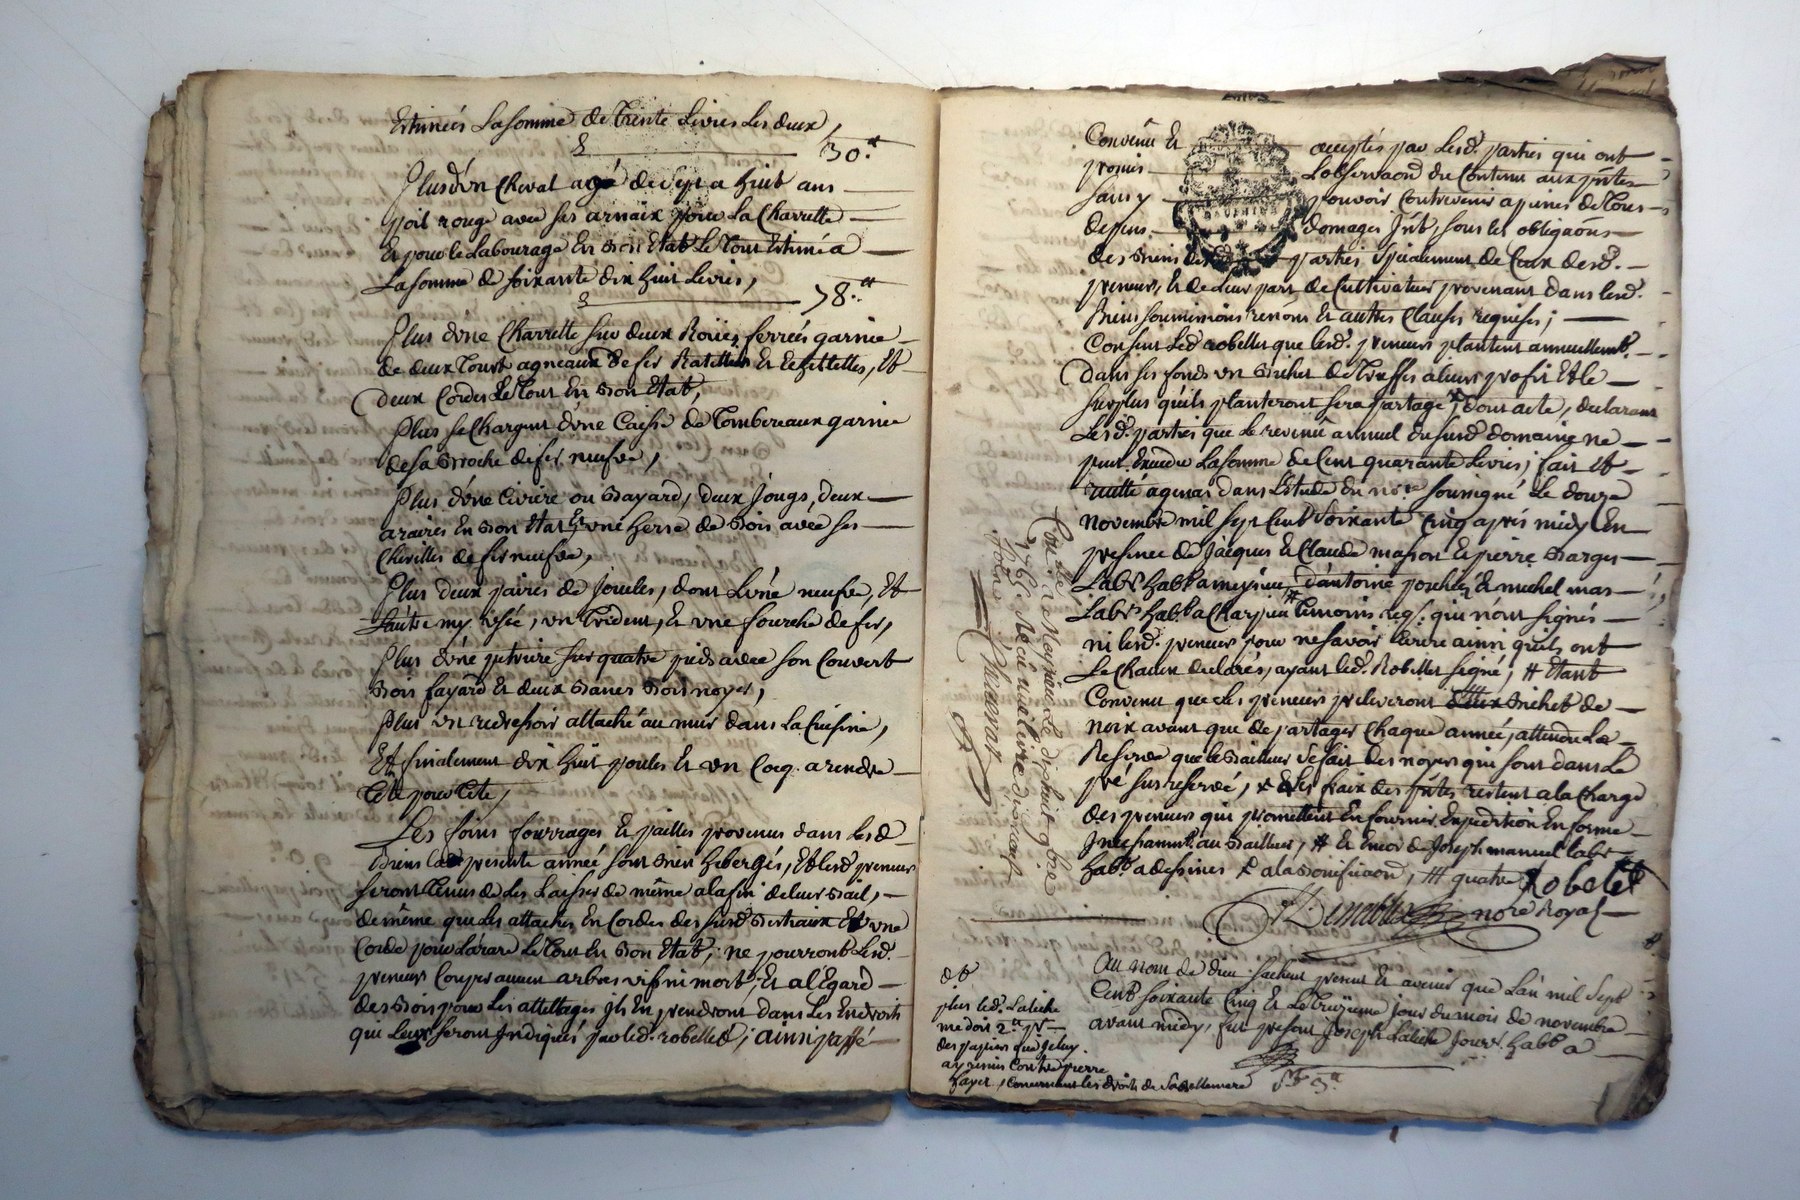 Estimées La somme de Trente Livres Les deux,
& 30.tt
Plus d'vn Cheval agé de Sept a huit ans
poil rouge avec ses arnaix pour La Charrette
Et pour le Labourage En bon Etat Le Tout Estimé a
La somme de soixante dix huit Livres,
& 78.tt
Plus d'vne Charrette sur deux Roües ferrées garnie
de deux Tours agneaux de fer Et
Deux Cordes Le Tout En bon Etat,
Plus se Chargent d'vne Caisse de Tombereaux garnie
de sa Broche de fer neufve,
Plus d'vne Civiere ou Bayard, deux Jougs, deux
araires En bon Etat Et vne herse de Bois avec ses
Chevilles de fer neufve,
Plus deux paires de Joucles, dont L'vne neufve, Et
L'autre my vsée, vn Trident, Et vne fourche de fer,
Plus d'vne petriere sur quatre pieds avec son Couvert
Bois fayard Et deux Bancs Bois noyer,
Plus vn attaché au mur dans La Cuisine,
Et finalement dix huit poules Et vn Cocq. a rendre
Tete pour Tete,
Les foins fourrages Et pailles provenus dans Lesd.
Biens La presente année sont Bien hebergés, Et Lesd preneurs
seront Tenus de Les Laisser de même a la fin de leur Bail,
de même que Les attaches En Cordes des susd. Bestiaux Et vne
Corde pour L'arare Le Tout En bon Etat, ne pourront Lesd.
preneurs Couper aucun arbres vif ni mort, Et a L'Egard
des Bois pour Les attellages Ils En prendront dans Les Endroits
qui Leurs seront Indiqués par led. robellet; ainsi passé
Convenu Et acceptés par Lesd. parties qui ont
promis L'observaon du Contenu aux pntes
sans y pouvoir Contrevenir a peines de Tous
depens domages Int, sous les obligaons
des Biens des parties specialement de Ceux desd.
preneurs, Et de Leur part de Cultivateur provenant dans lesd.
Biens soumissions renons Et autres Clauses requises;
Consent Led. robellet que lesd. preneurs plantent annuellemt.
Dans ses fonds vn Bichet de Truffes a leur profit Et le
surplus qu'ils planteront sera partagé, dont acte, declarant
Lesd. parties que Le revenu annuel du susd. domaine ne
peut Exceder La somme de Cent quarante Livres; fait Et
recitté a dans L'Etude En nore soussigné Le douze
novembre mil sept Cent soixante Cinq aprés midy En
presence de Jacques Et Claude mason Et pierre Barges
Labrs habts a meysieu, d'antoine Et michel mas
Labrs habts a Charpieu Temoins req: qui n'ont signés
ni lesd. preneurs pour ne savoir Ecrire ainsi qu'ils ont
Le Chacun declarés, ayant led. Robellet signé, # Etant
Convenu que Les preneurs preleveront deux Bichet de
noix avant que de partager Chaque année, attendu La
Reserve que le Bailleur se fait des noyers qui sont dans Le
pré sus reservé, x Et Les fraix des pntes restent a la Charge
des preneurs qui promettent En fournir Expedition En forme
Incessamt. au Bailleur, # Et Encor de Joseph manuel Labr
habt. a dessines x a la Bonifficaon, ## quatre Robellet
nore Royal
Con.lé a Meyzieu le dix huit 9bre
1765. Reçu neuf livre dix neuf
sols
Au nom de dieu sachent presents Et avenir que L'an mil Sept
Cent soixante Cinq Et Le Treizieme Jour du mois de novembre
avant midy, fut present Joseph Jour. habt a
plus led.
me doit 2.tt pr
des papiers que Je luy
ay remis Contre pierre
payet, Concernant les droits de sa